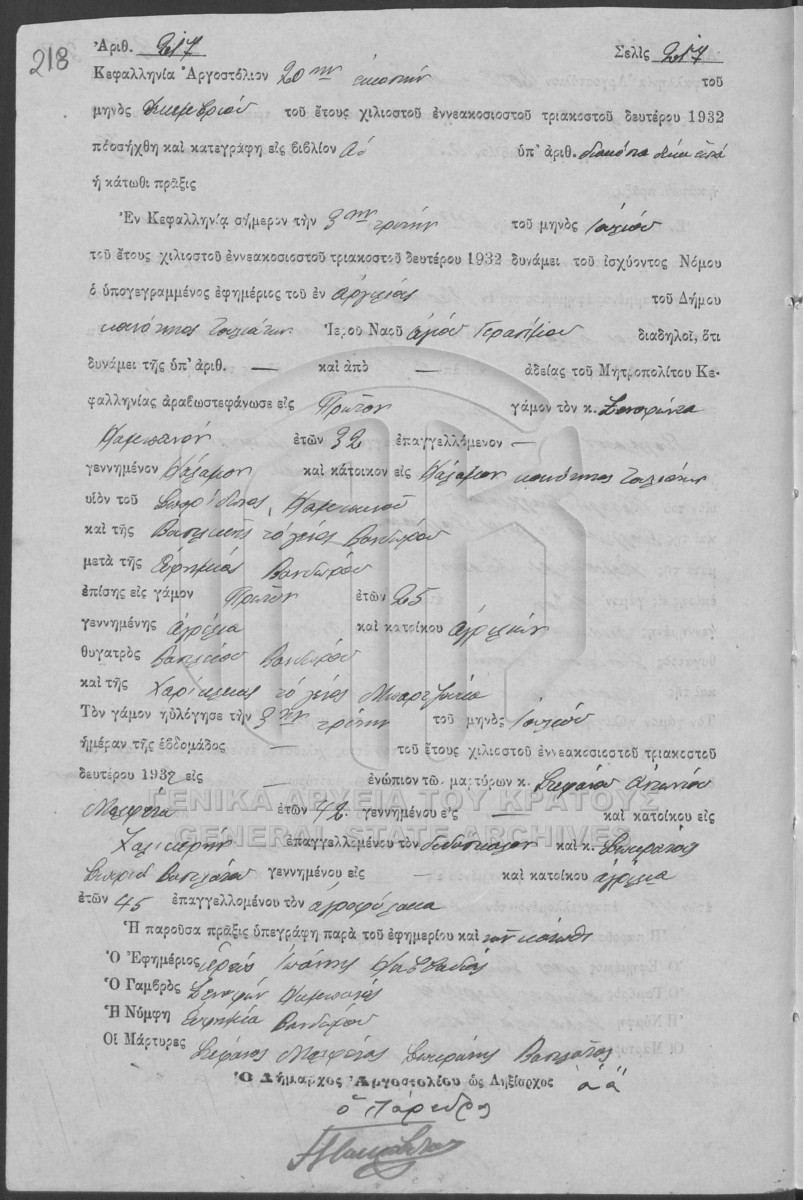 218
Ἀριθ. 217 Σελὶς 217
Κεφαλληνία Ἀργοστόλιον 20ην εἰκοστὴν τοῦ
μηνὸς Δεκεμβρίου τοῦ ἔτους χιλιοστοῦ ἐννεακοσιοστοῦ τριακοστοῦ δευτέρου 1932
πέοσήχθη καὶ κατεγράφη εἰς βιβλίον ὑπ' ἀριθ. διακόσια δέκα ἑπτὰ
ἡ κάτωθι πρᾶξις
Ἐν Κεφαλληνίᾳ σήμερον τὴν 3ην τρίτην τοῦ μηνὸς Ἰουλίου
τοῦ ἔτους χιλιοστοῦ ἐννεακοσιοστοῦ τριακοστοῦ δευτέρου 1932 δυνάμει τοῦ ἰσχύοντος Νόμου
ὁ ὑπογεγραμμένος ἐφημέριος τοῦ ἐν τοῦ Δήμου
κοινότητος Ἱεροῦ Ναοῦ Ἁγίου Γερασίμου διαδηλοῖ, ὅτι
δυνάμει τῆς ὑπ' ἀριθ. — καὶ ἀπὸ — ἀδείας τοῦ Μητροπολίτου Κε-
φαλληνίας ἀραβωστεφάνωσε εἰς Πρῶτον γάμον τὸν κ. Ξενοφῶντα
ἐτῶν 32 ἐπαγγελλόμενον —
γεννημένον καὶ κάτοικον εἰς κοινότητος
υἱὸν τοῦ Σπυρίδωνος
καὶ τῆς Βασιλικῆς τὸ γένος Βανδώρου
μετὰ τῆς Εὐφημίας Βανδώρου
ἐπίσης εἰς γάμον Πρῶτον ἐτῶν 25
γεννημένης Ἀγρίλια καὶ κατοίκου Ἀγριλιῶν
θυγατρὸς Βασιλείου Βανδώρου
καὶ τῆς Χαρίκλειας τὸ γένος
Τὸν γάμον ηὐλόγησε τὴν 3ην τρίτην τοῦ μηνὸς Ἰουλίου
ἡμέραν τῆς ἑβδομάδος — τοῦ ἔτους χιλιοστοῦ ἐννεακοσιοστοῦ τριακοστοῦ
δευτέρου 1932 εἰς — ἐνώπιον τῶν μαρτύρων κ. Στεφάνου Ἀντωνίου
ΓΕΝΙΚΑ ΑΡΧΕΙΑ ΤΟΥ ΚΡΑΤΟΥΣ
ἐτῶν 42 γεννημένου εἰς — καὶ κατοίκου εἰς
GENERAL STATE ARCHIVES
ἐπαγγελλομένου τὸν διδάσκαλον καὶ κ. Σωκράτης
γεννημένου εἰς — καὶ κατοίκου Ἀγρίλια
ἐτῶν 45 ἐπαγγελλομένου τὸν ἀγροφύλακα
Ἡ παροῦσα πρᾶξις ὑπεγράφη παρὰ τοῦ ἐφημερίου καὶ τῶν κάτωθι
Ὁ Ἐφημέριος ἱερεὺς Ἰωάννης
Ὁ Γαμβρὸς Ξενοφῶν
Ἡ Νύμφη Εὐφημία Βανδώρου
Οἱ Μάρτυρες Στέφανος Σωκράτης
Ὁ Δήμαρχος Ἀργοστολίου ὡς Ληξίαρχος ἀ ἀ
ὁ Πάρεδρος